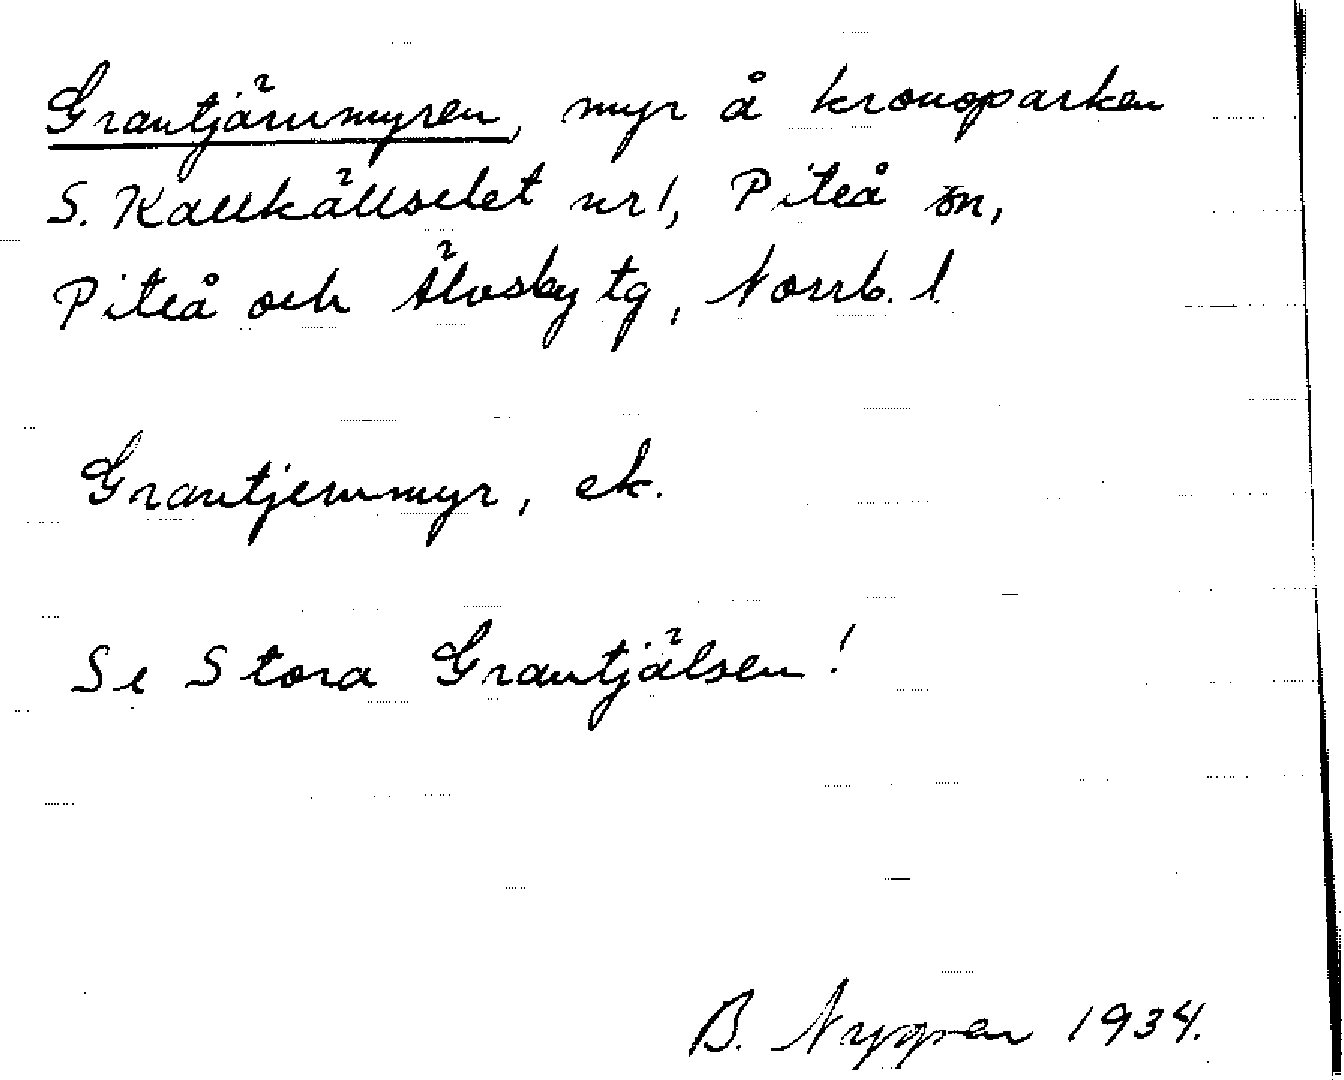 Grantjärnmyren, myr å kronoparken
S. Kallkällselet nr 1, Piteå sn,
Piteå och Älvsby tg, Norrb. l.
Grantjernmyr, ek.
Se Stora Grantjälsen!
B. Nygren 1934.